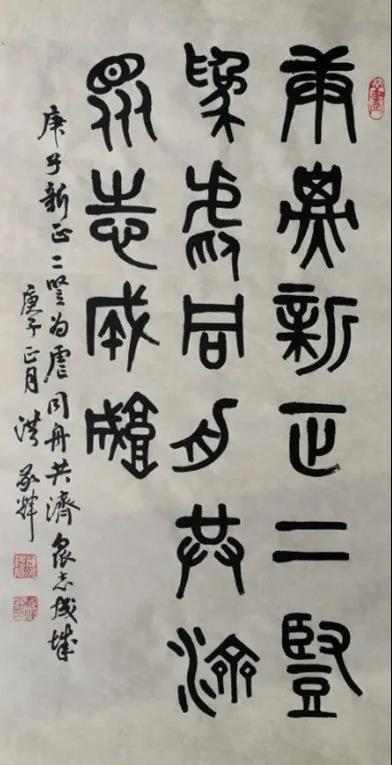 庚子新正二豎
為虐同舟共濟
眾志成城
庚子新正二竖为虐同舟共濟眾志成城
庚子正月洪